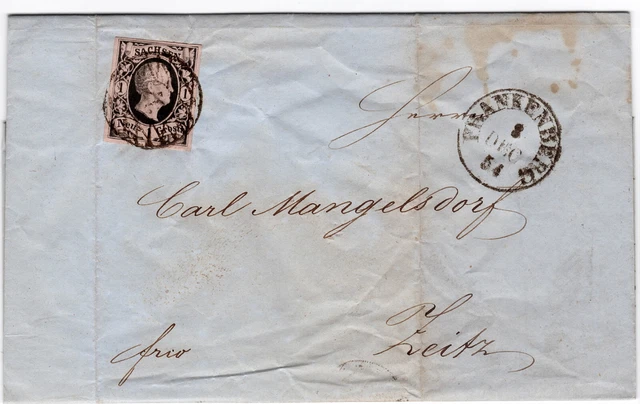 SACHSEN
1 1
Neu-Grosch.
Herrn
FRANKENBERG
8
DEC
54
Carl Mangelsdorf
Zeitz
frco